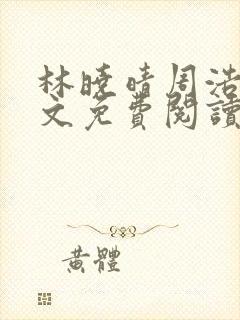 林曉晴周浩
文免費閱讀
黃體